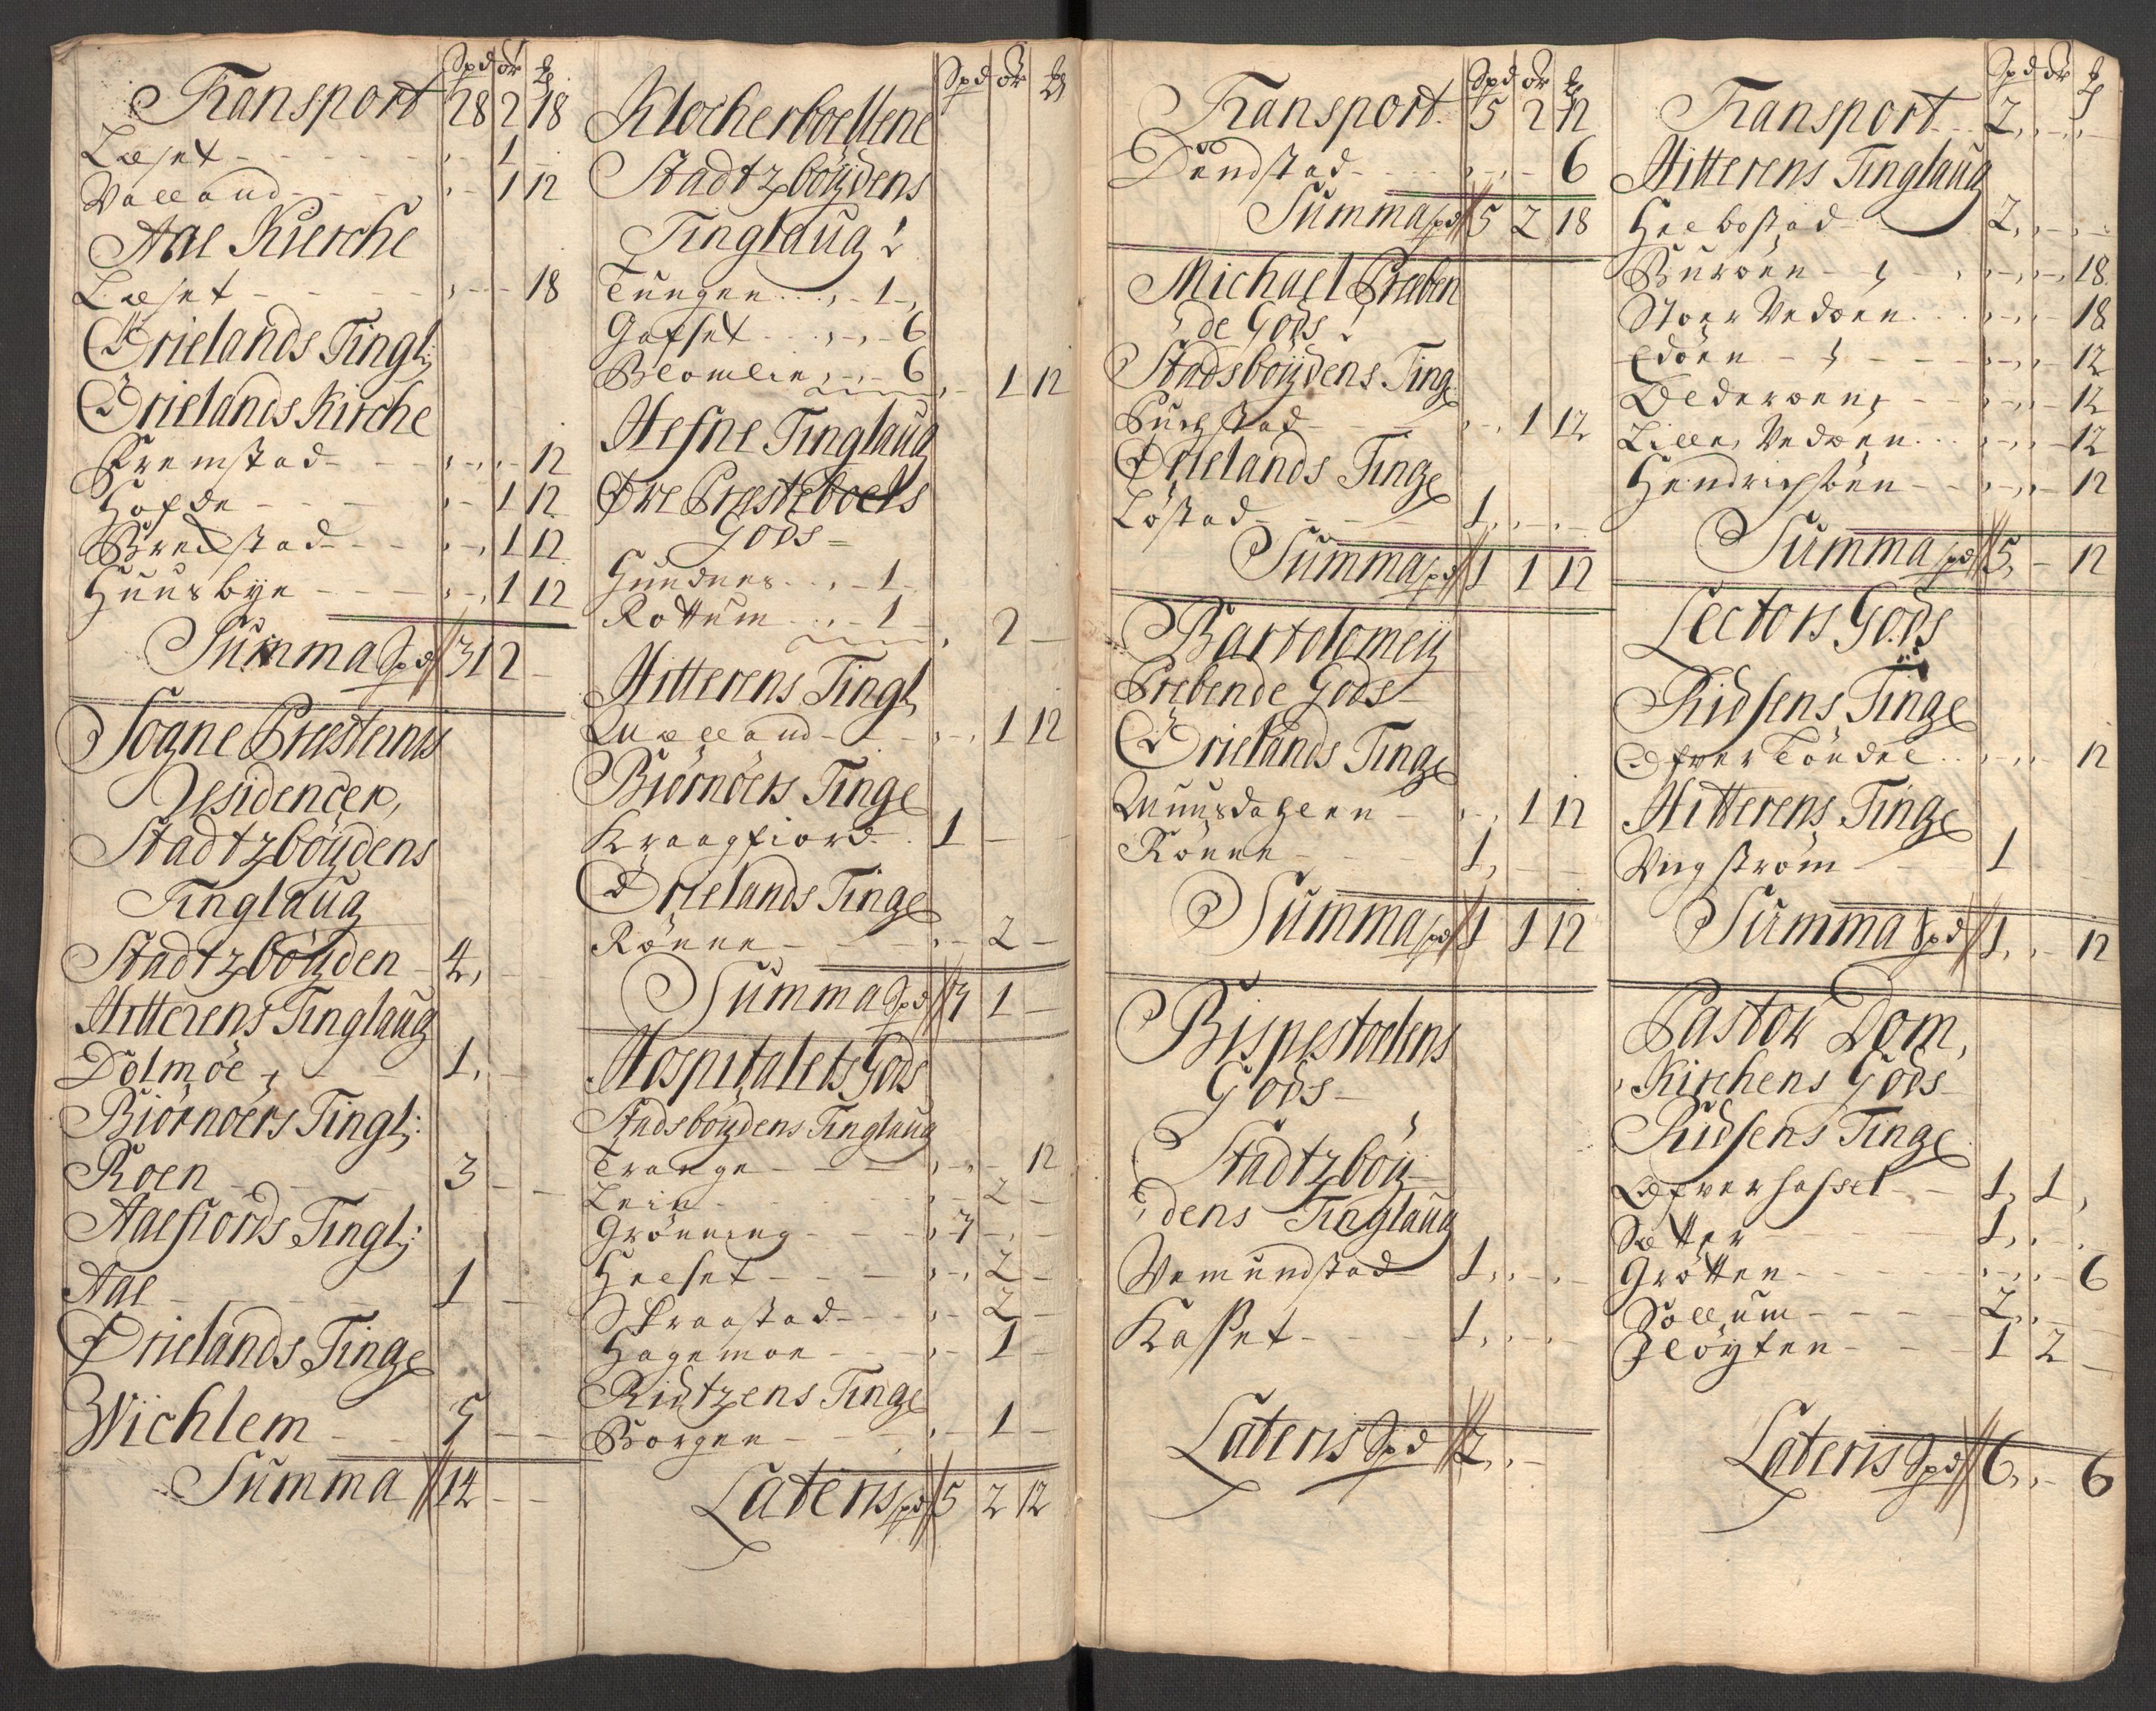 Spd ør mk
Transport 28 2 18
Læset - 1 -
Valland - 1 12
Aae Kierche
Læset - - 18
Ørielands Tingl:
Ørielands Kirche
Fremstad - - 12
Hofde - 1 12
Bredstad - 1 12
Huusbye - 1 12
Summa Spd 31 2 -
Sogne Præsternes
Residencer,
Stadtzbøÿdens
Tinglaug
Stadtzbøÿden 4, -
Hitterens Tinglaug
Dolmøe 1, -
Biørnøers Tingl:
Roen 3 - -
Aaefiords Tingl:
Aae 1 -
Ørielands Tinge
Wichlem 5 - -
Summa 14 - -
Spd ør
Klocherboellene
Stadtzbøÿdens
Tinglaug
Tungen - 1 -
Gafset - - 6
Blomlie - - 6 - 1 12
Hefne Tinglaug
Øre Præsteboels
Gods
Gundnes - 1 -
Rottum - 1 - - 2 -
Hitterens Tingl
Qualland - 1 12
Biørnøers Tinge
Kraagfiord 1 - -
Ørielands Tinge
Rønne - 2 -
Summa Spd 3 1 -
Hospitalets Gods
Stadsbøÿdens Tinglaug
Trange - - 12
Lein - 2 -
Grønning - 3 - -
Helset - 2 -
Skraastad - 2 -
Hagemoe - 1 -
Ridtzens Tinge
Borgen - 1 -
Lateris spd 5 2 12
Spd ør
Transport 5 2 12
Dundstad - - 6
Summa spd 5 2 18
Michael Præben
de Gods
Stadsbøÿdens Ting
Puchstad - 1 12
Ørielands Tinge
Løstad 1 - -
Summa spd 1 1 12
Bartolomeÿ
Prebende Gods
Ørielands Tinge
Muusdahlen - 1 12
Rønne 1, - -
Summa spd 1 1 12
Bispestoelens
Gods
Stadtzbøÿ-
dens Tinglaug
Wemundstad 1 - -
Kaset 1 - -
Lateris Spd 2 - -
Spd ør
Transport 2 - -
Hitterens Tinglaug
Helbostad 2, - -
Burøen - - 18
Stoer Vedøen - - 18
Edøen - - 12
Ulderøen - - 12
Lille Vedøen - - 12
Hendrichsøen - - 12
Summa spd 5 - 12
Lectors Gods
Ridsens Tinge
Øfver Tøndel - - 12
Hitterens Tinge
Vingstrøm 1
Summa Spd 1 - 12
Pastor Dom,
Kirchens Gods
Ridsens Tinge
Øfverhassel 1, 1,
Sætter 1, - -
Grøtten - - 6
Sollum 2 -
Fløÿten 1 2 -
Lateris Spd 6, - 6